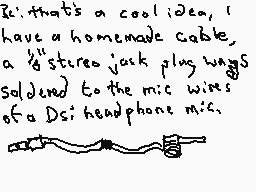 Re: that's a cool idea, I
have a homemade cable,
a 1/8" stereo jack plug
soldered to the mic wires
of a Dsi headphone mic.